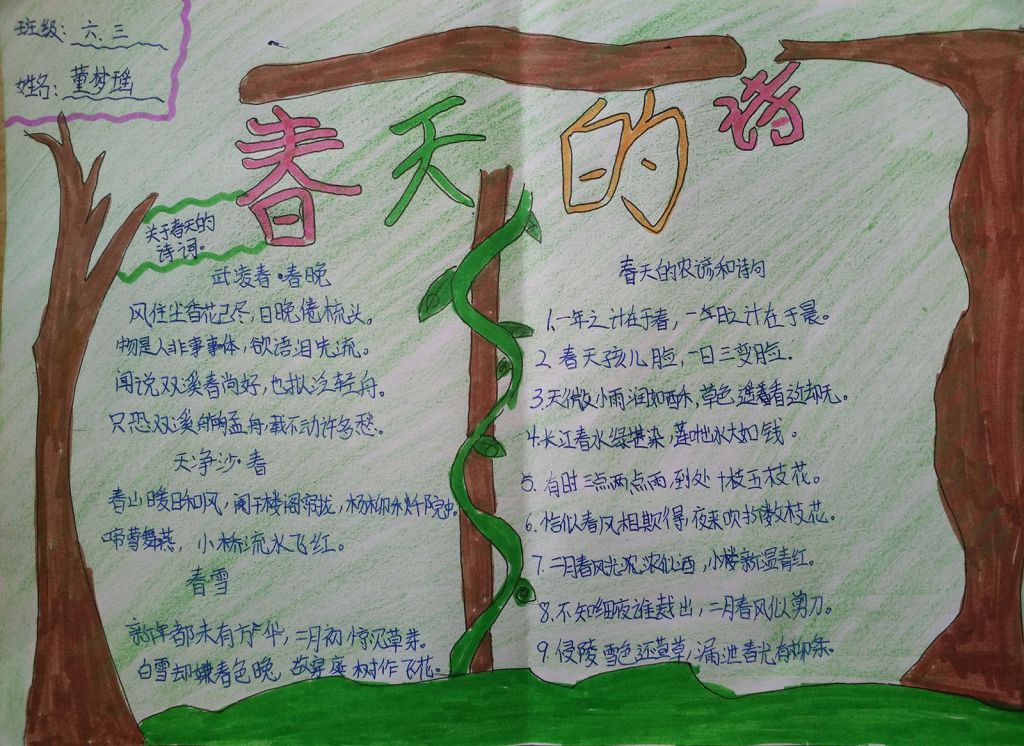 班级：六、三
姓名：董梦瑶
春天的诗
关于春天的
诗词。
武凌春·春晚
风住尘香花已尽，日晚倦梳头。
物是人非事事休，欲语泪先流。
闻说双溪春尚好，也拟泛轻舟。
只恐双溪舴艋舟，载不动许多愁。
天净沙·春
春山暖日和风，阑干楼阁帘拢，杨柳秋千院中。
啼莺舞燕，小桥流水飞红。
春雪
新年都未有芳华，二月初惊见草芽。
白雪却嫌春色晚，故穿庭树作飞花。
春天的农谚和诗句
1.一年之计在于春，一年日之计在于晨。
2.春天孩儿脸，一日三变脸。
3.天街小雨润如酥，草色遥看近却无。
4.长江春水绿堪染，莲叶出水大如钱。
5.有时三点两点雨，到处十枝五枝花。
6.恰似春风相欺得，夜来吹折数枝花。
7.二月春风光浓浓似酒，小楼新湿青红。
8.不知细夜谁裁出，二月春风似剪刀。
9.侵陵雪色还萱草，漏泄春光有柳条。